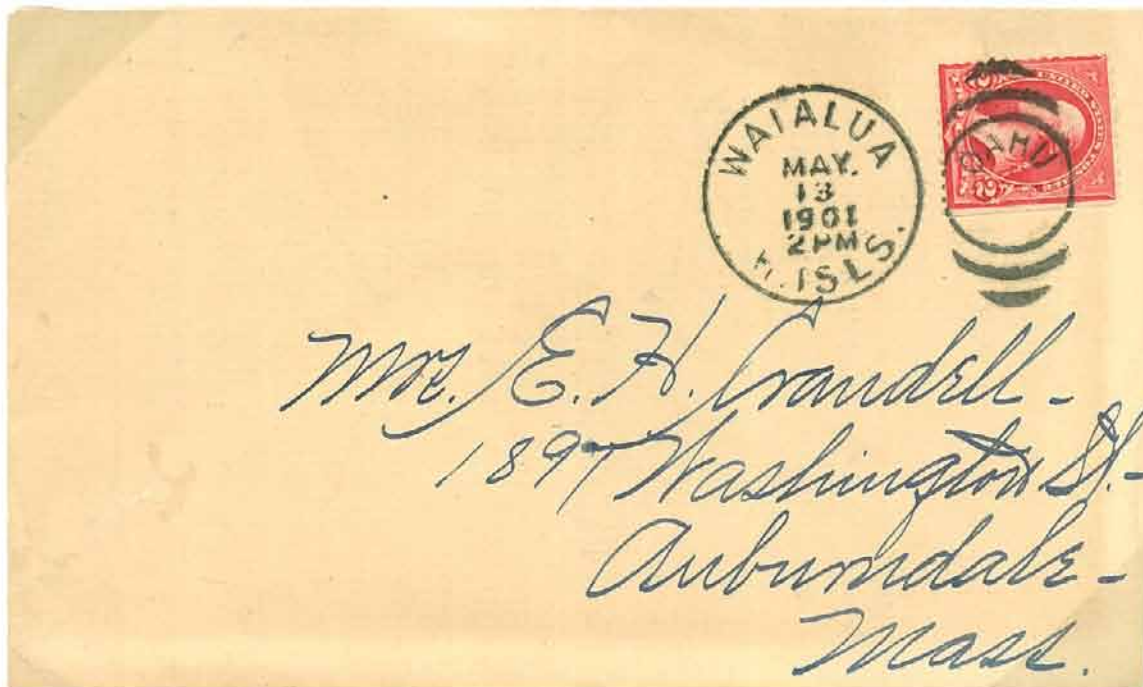 WAIALUA
MAY.
13
1901
2PM
H.ISLS.
OAHU
UNITED STATES
Mrs. E. H. Crandell -
1897 Washington St. -
Auburndale -
Mass.